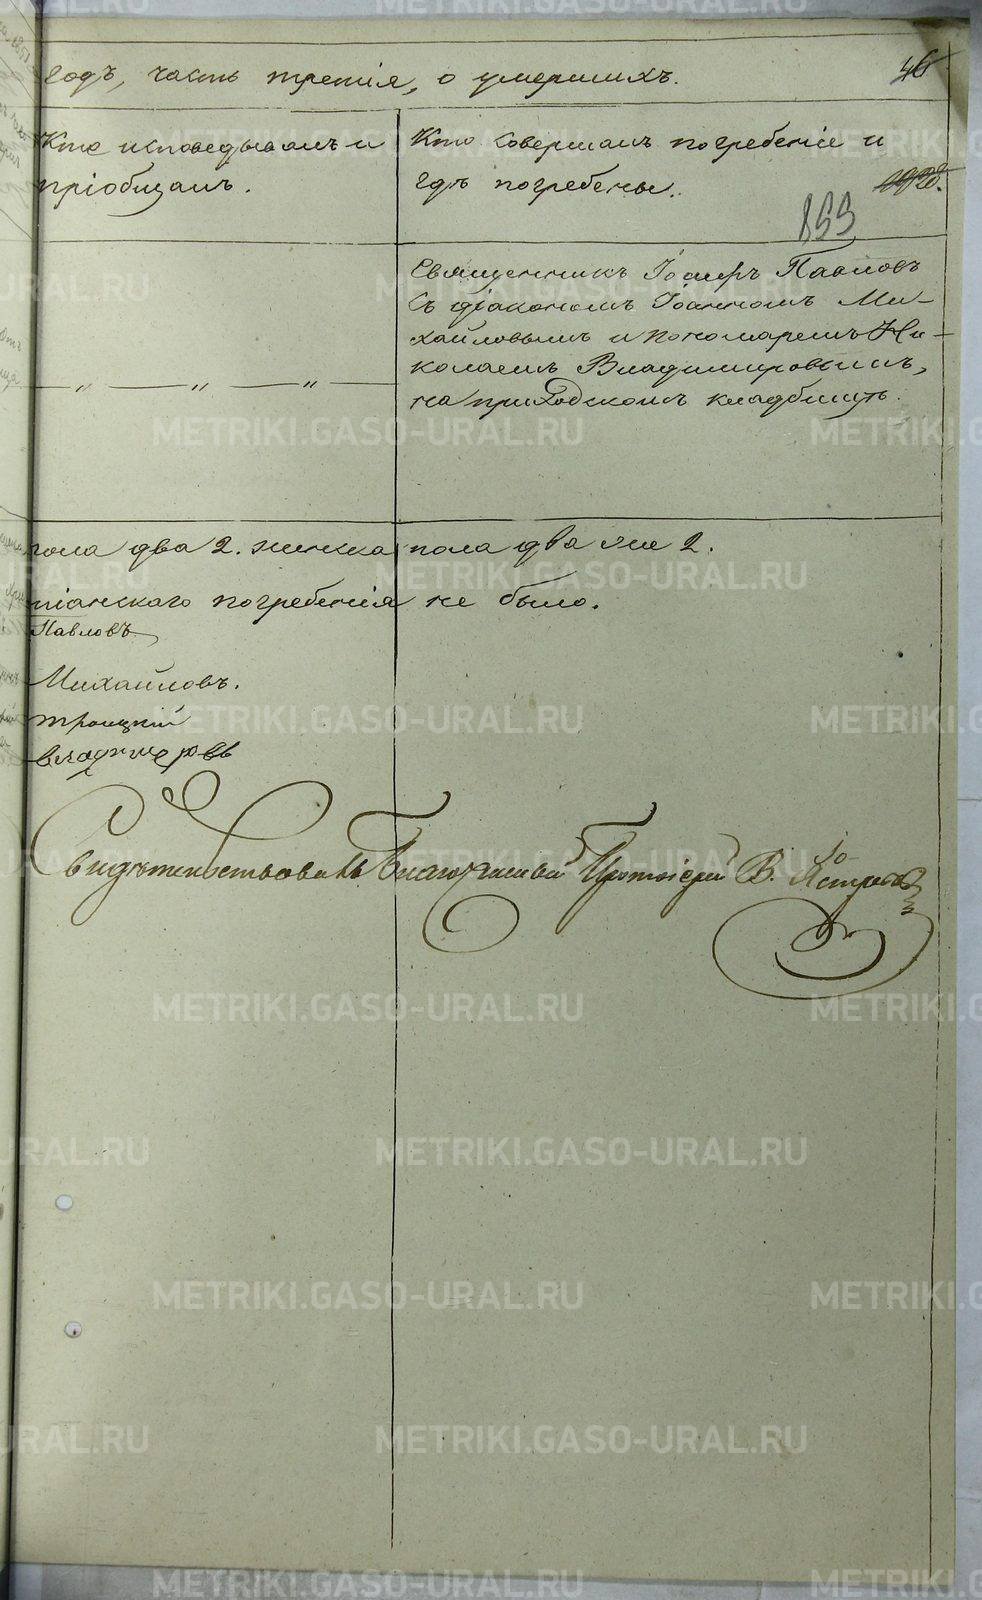 годъ, часть третія, о умершихъ.
46
Кто исповедывалъ и
пріобщалъ.
Кто совершалъ погребеніе и
гдѣ погребены.
853
Священникъ Іосифъ Павловъ
съ діакономъ Іоанномъ Ми-
хайловымъ и пономаремъ Ни-
колаемъ Владимировымъ,
на приходскомъ кладбищѣ.
— „ — „ — „ —
пола два 2. женска пола два же 2.
тіанскаго погребенія не было.
Павловъ
Михайловъ.
Троицкій
Владимеровъ
Свидѣтельствовалъ Благочинный Протоіерей В.
METRIKI.GASO-URAL.RU